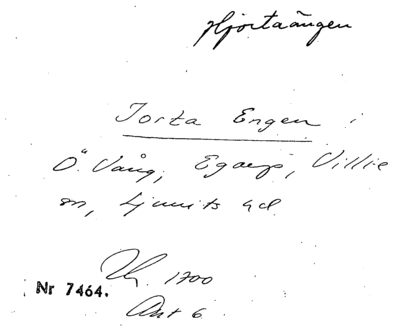 Hjortaängen
Jorta Engen i
Ö. Vång, Egarp, Villie
sn, Ljunits hd.
1700
Nr 7464.
Akt 6